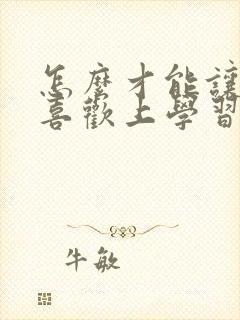 怎麼才能讓
喜歡上學習
牛敏